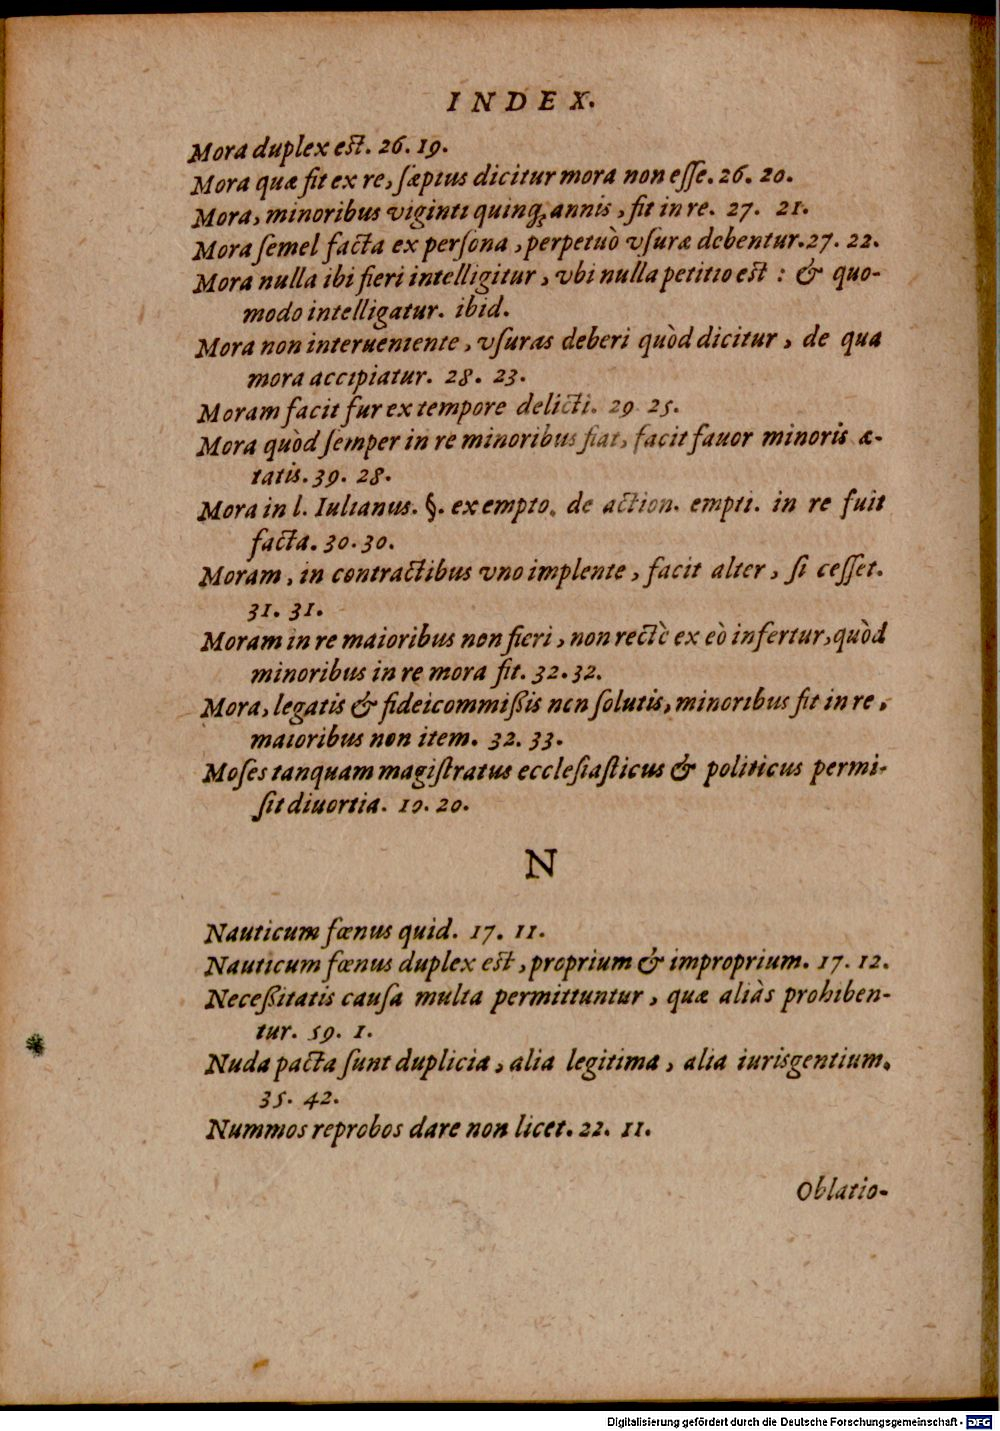 INDEX.
Mora duplex est. 26. 19.
Mora quæ fit ex re, sæpius dicitur mora non esse. 26. 20.
Mora, minoribus viginti quinq; annis, fit in re. 27. 21.
Mora semel facta ex persona, perpetuò vsuræ debentur. 27. 22.
Mora nulla ibi fieri intelligitur, vbi nulla petitio est: & quo-
modo intelligatur. ibid.
Mora non interueniente, vsuras deberi quòd dicitur, de qua
mora accipiatur. 28. 23.
Moram facit fur ex tempore delicti. 29 25.
Mora quòd semper in re minoribus fiat, facit fauor minoris æ-
tatis. 39. 28.
Mora in l. Iulianus. §. ex empto. de action. empti. in re fuit
facta. 30. 30.
Moram, in contractibus vno implente, facit alter, si cesset.
31. 31.
Moram in re maioribus non fieri, non rectè ex eò infertur, quòd
minoribus in re mora fit. 32. 32.
Mora, legatis & fideicommißis non solutis, minoribus fit in re,
maioribus non item. 32. 33.
Moses tanquam magistratus ecclesiasticus & politicus permi-
sit diuortia. 19. 20.
N
Nauticum fœnus quid. 17. 11.
Nauticum fœnus duplex est, proprium & improprium. 17. 12.
Neceßitatis causa multa permittuntur, quæ aliàs prohiben-
tur. 59. 1.
Nuda pacta sunt duplicia, alia legitima, alia iurisgentium.
35. 42.
Nummos reprobos dare non licet. 22. 11.
Oblatio-
Digitalisierung gefördert durch die Deutsche Forschungsgemeinschaft - DFG